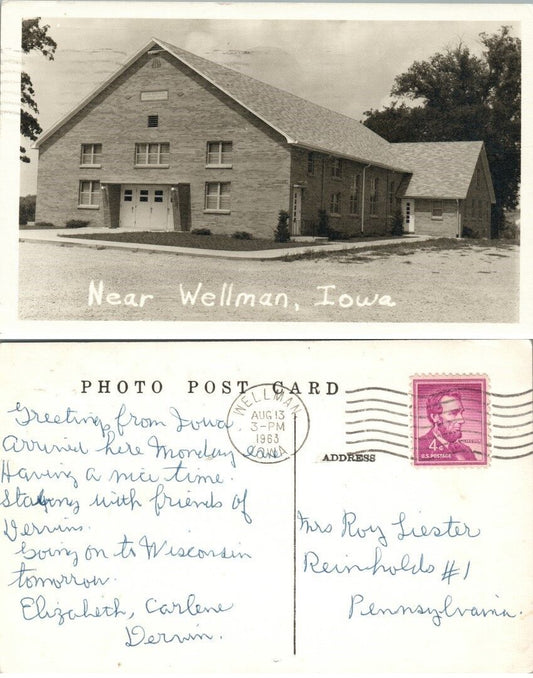 Near Wellman, Iowa
PHOTO POST CARD
WELLMAN
AUG 13
3-PM
1963
IOWA
ADDRESS
4¢
LINCOLN
U.S. POSTAGE
Greetings from Iowa
Arrived here Monday
Having a nice time.
Staying with friends of
Dervins.
Going on to Wisconsin
tomorrow.
Elizabeth, Carlene
Dervin.
Mrs Roy Liester
Reinholds #1
Pennsylvania.